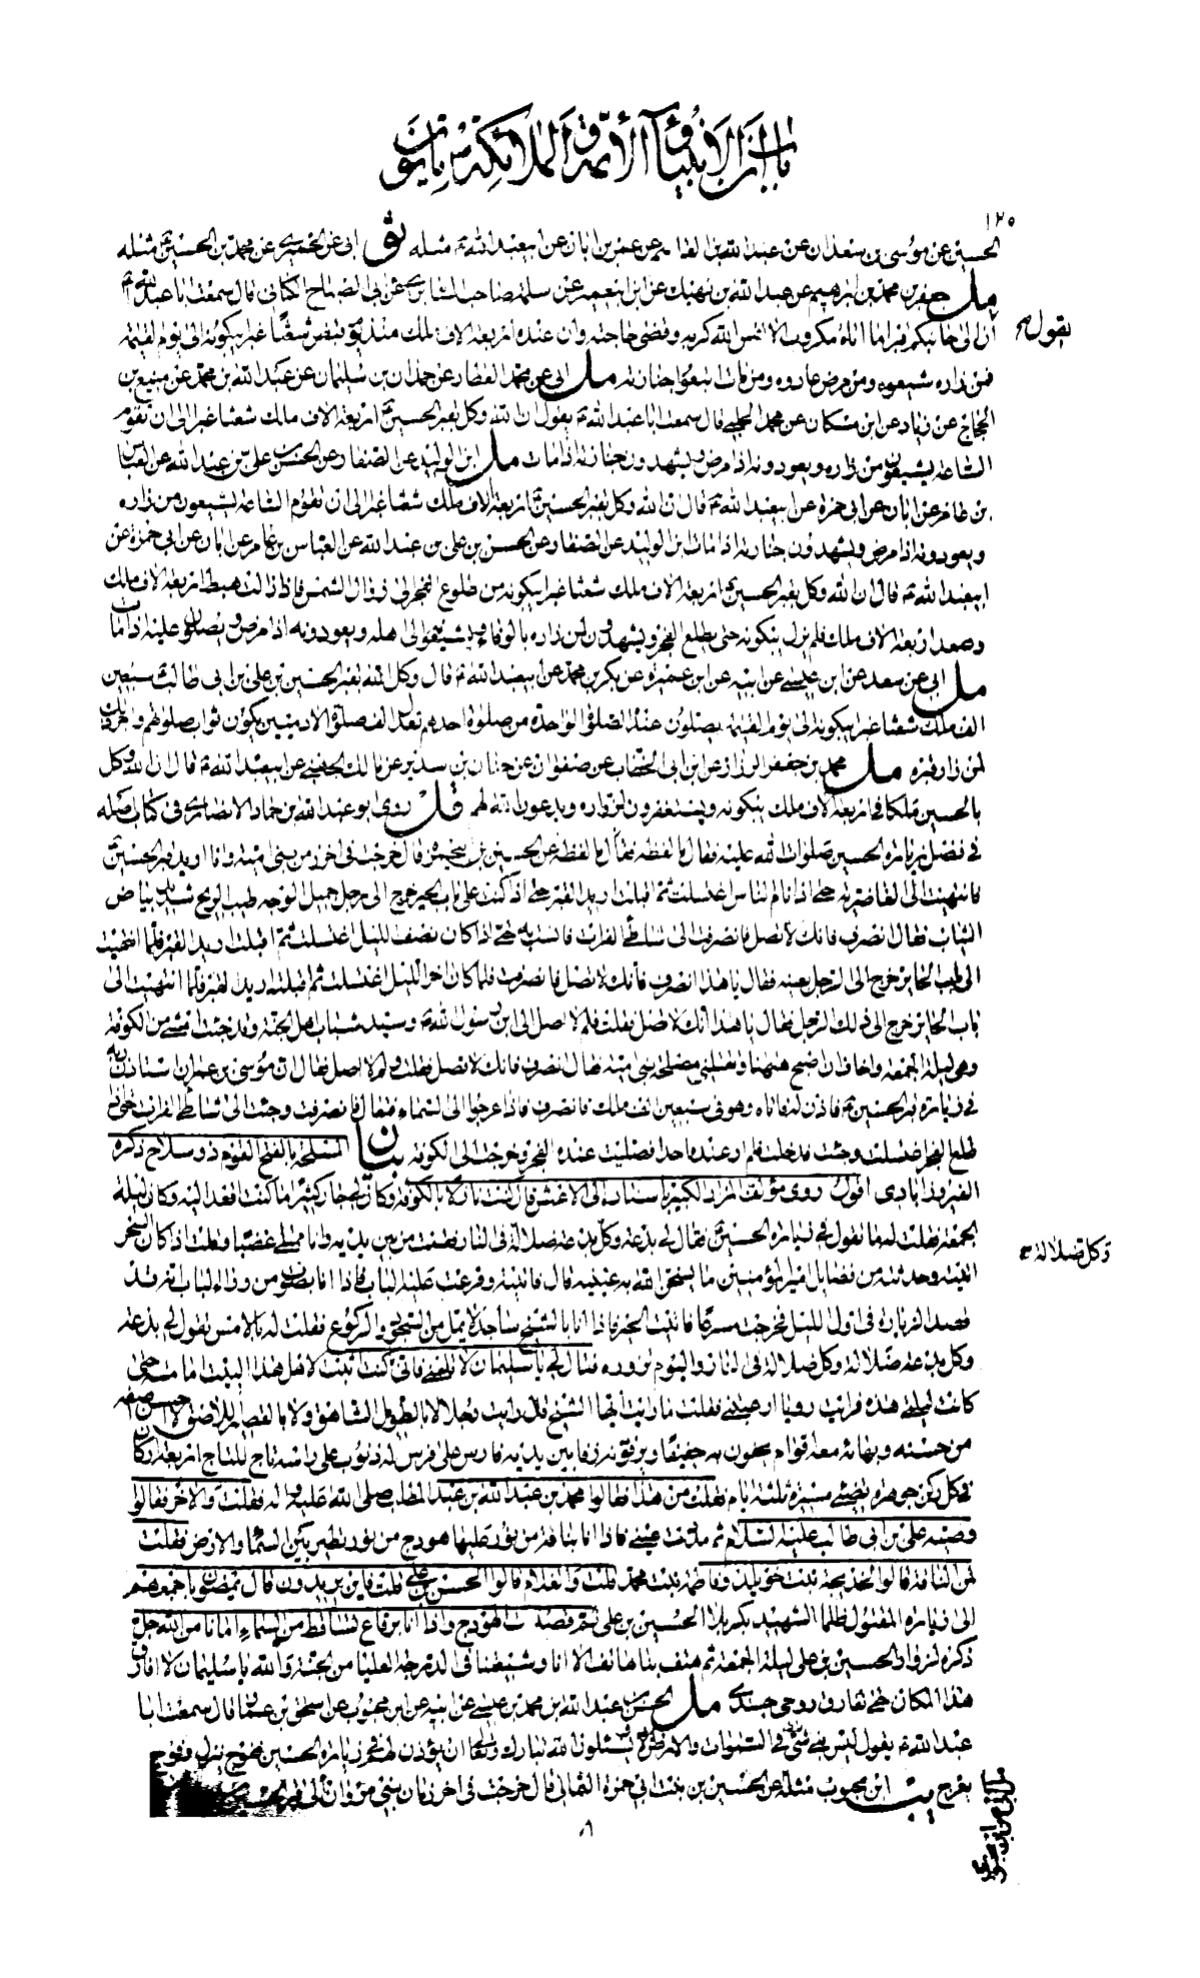 باب ان الانبياء و الأئمة و الملائكة يأتون
١٢٥
الحسين عن موسى بن سعدان عن عبدالله بن القاسم عن عمر بن ابان عن ابيعبدالله ع مثله ثو ابى عن الحميرى عن محمد بن الحسين ع مثله
مل جعفر بن محمد بن ابرهيم عن عبدالله بن نهيك عن ابن ابيعمير عن سلمة صاحب السابرى عن ابى الصباح الكنانى قال سمعت ابا عبدالله ع
يقول
ان الى جانبكم قبرا ما اتاه مكروب الا نفس الله كربه و قضى حاجته و ان عنده اربعة الاف ملك منذ يوم قبض شعثا غبرا يبكونه الى يوم القيمة
فمن زاره شيعوه و من مرض عادوه و من مات اتبعوا جنازته مل ابى عن محمد العطار عن حمدان بن سليمان عن عبدالله بن محمد عن منيع بن
الحجاج عن زياد عن ابن مسكان عن محمد الحلبى قال سمعت ابا عبدالله ع يقول ان الله وكل بقبر الحسين ع اربعة الاف ملك شعثا غبرا الى ان تقوم
الساعة يشيعون من زاره و يعودونه اذا مرض و يشهدون جنازته اذا مات مل ابن الوليد عن الصفار عن الحسن بن على بن عبدالله عن العباس
بن عامر عن ابان عن ابى حمزة عن ابيعبدالله ع قال ان الله وكل بقبر الحسين ع اربعة الاف ملك شعثا غبرا الى ان تقوم الساعة يشيعون من زاره
و يعودونه اذا مرض و يشهدون جنازته اذا مات ابن الوليد عن الصفار عن الحسن بن على بن عبدالله عن العباس بن عامر عن ابان عن ابى حمزة عن
ابيعبدالله ع قال ان الله وكل بقبر الحسين ع اربعة الاف ملك شعثا غبرا يبكونه من طلوع الفجر الى زوال الشمس فاذا زالت هبط اربعة الاف ملك
و صعد اربعة الاف ملك فلم يزل يبكونه حتى يطلع الفجر و يشهدون لمن زاره بالوفاء و يشيعونه الى اهله و يعودونه اذا مرض و يصلون عليه اذا مات
مل ابى عن سعد عن ابن عيسى عن ابيه عن ابن عميرة عن بكر بن محمد عن ابيعبدالله ع قال وكل الله بقبر الحسين بن على بن ابى طالب سبعين
الف ملك شعثا غبرا يبكونه الى يوم القيمة يصلون عنده الصلوة الواحدة من صلوة احدهم تعدل الف صلوة الادميين يكون ثواب صلوتهم و اجر ذلك
لمن زار قبره مل محمد بن جعفر الرزاز عن ابن ابى الخطاب عن صفوان عن حنان بن سدير عن مالك الجهنى عن ابيعبدالله ع قال ان الله وكل
بالحسين ملكا فى اربعة الاف ملك يبكونه و يستغفرون لزواره و يدعون الله لهم قل روى ابو عبدالله بن حماد الانصارى فى كتاب اصله
فى فضل زيارة الحسين صلوات الله عليه فقال ما لفظه عن الحسين بن ابى حمزة قال خرجت فى اخر زمن بنى امية و انا اريد قبر الحسين ع
فانتهيت الى الغاضرية حتى اذا نام الناس اغتسلت ثم اقبلت اريد القبر حتى اذا كنت على باب الحير خرج الى رجل جميل الوجه طيب الريح شديد بياض
الثياب فقال انصرف فانك لا تصل فانصرفت الى شاطئ الفرات فانست به حتى اذا كان نصف الليل اغتسلت ثم اقبلت اريد القبر فلما انتهيت
الى باب الحاير خرج الى الرجل بعينه فقال يا هذا انصرف فانك لا تصل فانصرفت فلما كان اخر الليل اغتسلت ثم اقبلت اريد القبر فلما انتهيت الى
باب الحاير خرج الى ذلك الرجل فقال يا هذا انك لا تصل فقلت فلم لا اصل الى ابن رسول الله ع و سيد شباب اهل الجنة و قد جئت امشى من الكوفة
و هى ليلة الجمعة و اخاف ان اصبح ههنا و تقتلنى مصلحة بنى امية فقال انصرف فانك لا تصل فقلت و لم لا اصل فقال ان موسى بن عمران استأذن ربه
فى زيارة قبر الحسين ع فاذن له فاتاه و هو فى سبعين الف ملك فانصرف فاذا عرجوا الى السماء فتعال فانصرفت و جئت الى شاطئ الفرات حتى اذا
طلع الفجر اغتسلت و جئت فدخلت فلم ار عنده احدا فصليت عنده الفجر و خرجت الى الكوفة بيان المسلحة بالفتح القوم ذو سلاح ذكره
الفيروزابادى اقول روى مؤلف المزار الكبير باسناده الى الاعمش قال كنت نازلا بالكوفة و كان لى جار كثيرا ما كنت اقعد اليه و كان ليلة
الجمعة فقلت له ما تقول فى زيارة الحسين ع فقال لى بدعة و كل بدعة ضلالة فى النار فقمت من بين يديه و انا ممتلئ غضبا و قلت اذا كان السحر
و كل ضلالة
اتيته و حدثته من فضايل امير المؤمنين ما يسخن الله به عينيه قال فاتيته و قرعت عليه الباب فاذا انا بصوت من وراء الباب انه قد
قصد الزيارة فى اول الليل فخرجت مسرعا فاتيت الحير فاذا انا بالشيخ ساجد لا يمل من السجود و الركوع فقلت له بالامس تقول لى بدعة
و كل بدعة ضلالة و كل ضلالة فى النار و اليوم تزوره فقال لى يا سليمان لا تلمنى فانى ما كنت اثبت لاهل هذا البيت امامة حتى
كانت ليلتى هذه فرايت رؤيا ارعبتنى فقلت ما رايت ايها الشيخ قال رايت رجلا لا بالطويل الشاهق و لا بالقصير اللاصق لا احسن اصفه
من حسنه و بهائه معه اقوام يحفون به حفيفا و يزفونه زفا بين يديه فارس على فرس له ذنوب على راسه تاج للتاج اربعة اركان
فى كل ركن جوهرة تضئ مسيرة ثلثة ايام فقلت من هذا فقالوا محمد بن عبدالله بن عبد المطلب صلى الله عليه و اله فقلت و الاخر فقالوا
وصيه على بن ابى طالب عليه السلام ثم مددت عينى فاذا انا بناقة من نور عليها هودج من نور تطير بين السماء و الارض فقلت
لمن الناقة قالوا لخديجة بنت خويلد و فاطمة بنت محمد قلت و الغلام قالوا الحسن بن على قلت فاين يريدون قال يمضون باجمعهم
الى زيارة المقتول ظلما الشهيد بكربلا الحسين بن على ثم قصدت الهودج و اذا انا برقاع تساقط من السماء امانا من الله جل
ذكره لزوار الحسين بن على ليلة الجمعة ثم هتف بنا هاتف الا انا و شيعتنا فى الدرجة العليا من الجنة و الله يا سليمان لا افارق
هذا المكان حتى تفارق روحى جسدى مل الحسن بن عبدالله بن محمد بن عيسى عن ابيه عن ابن محبوب عن اسحق بن عمار قال سمعت ابا
عبدالله ع يقول ليس نبى فى السموات و الارض الا يسئلون الله تبارك و تعالى ان يؤذن لهم فى زيارة الحسين ففوج ينزل و فوج
يعرج يب ابن محبوب مثله عن الحسين بن بنت ابى حمزة الثمالى قال خرجت فى اخر زمان بنى مروان الى قبر الحسين
٨٦